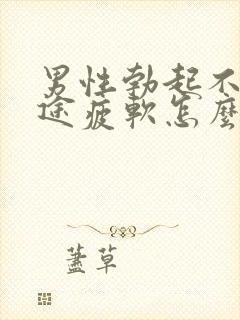 男性勃起不
途疲軟怎麼
蓋草